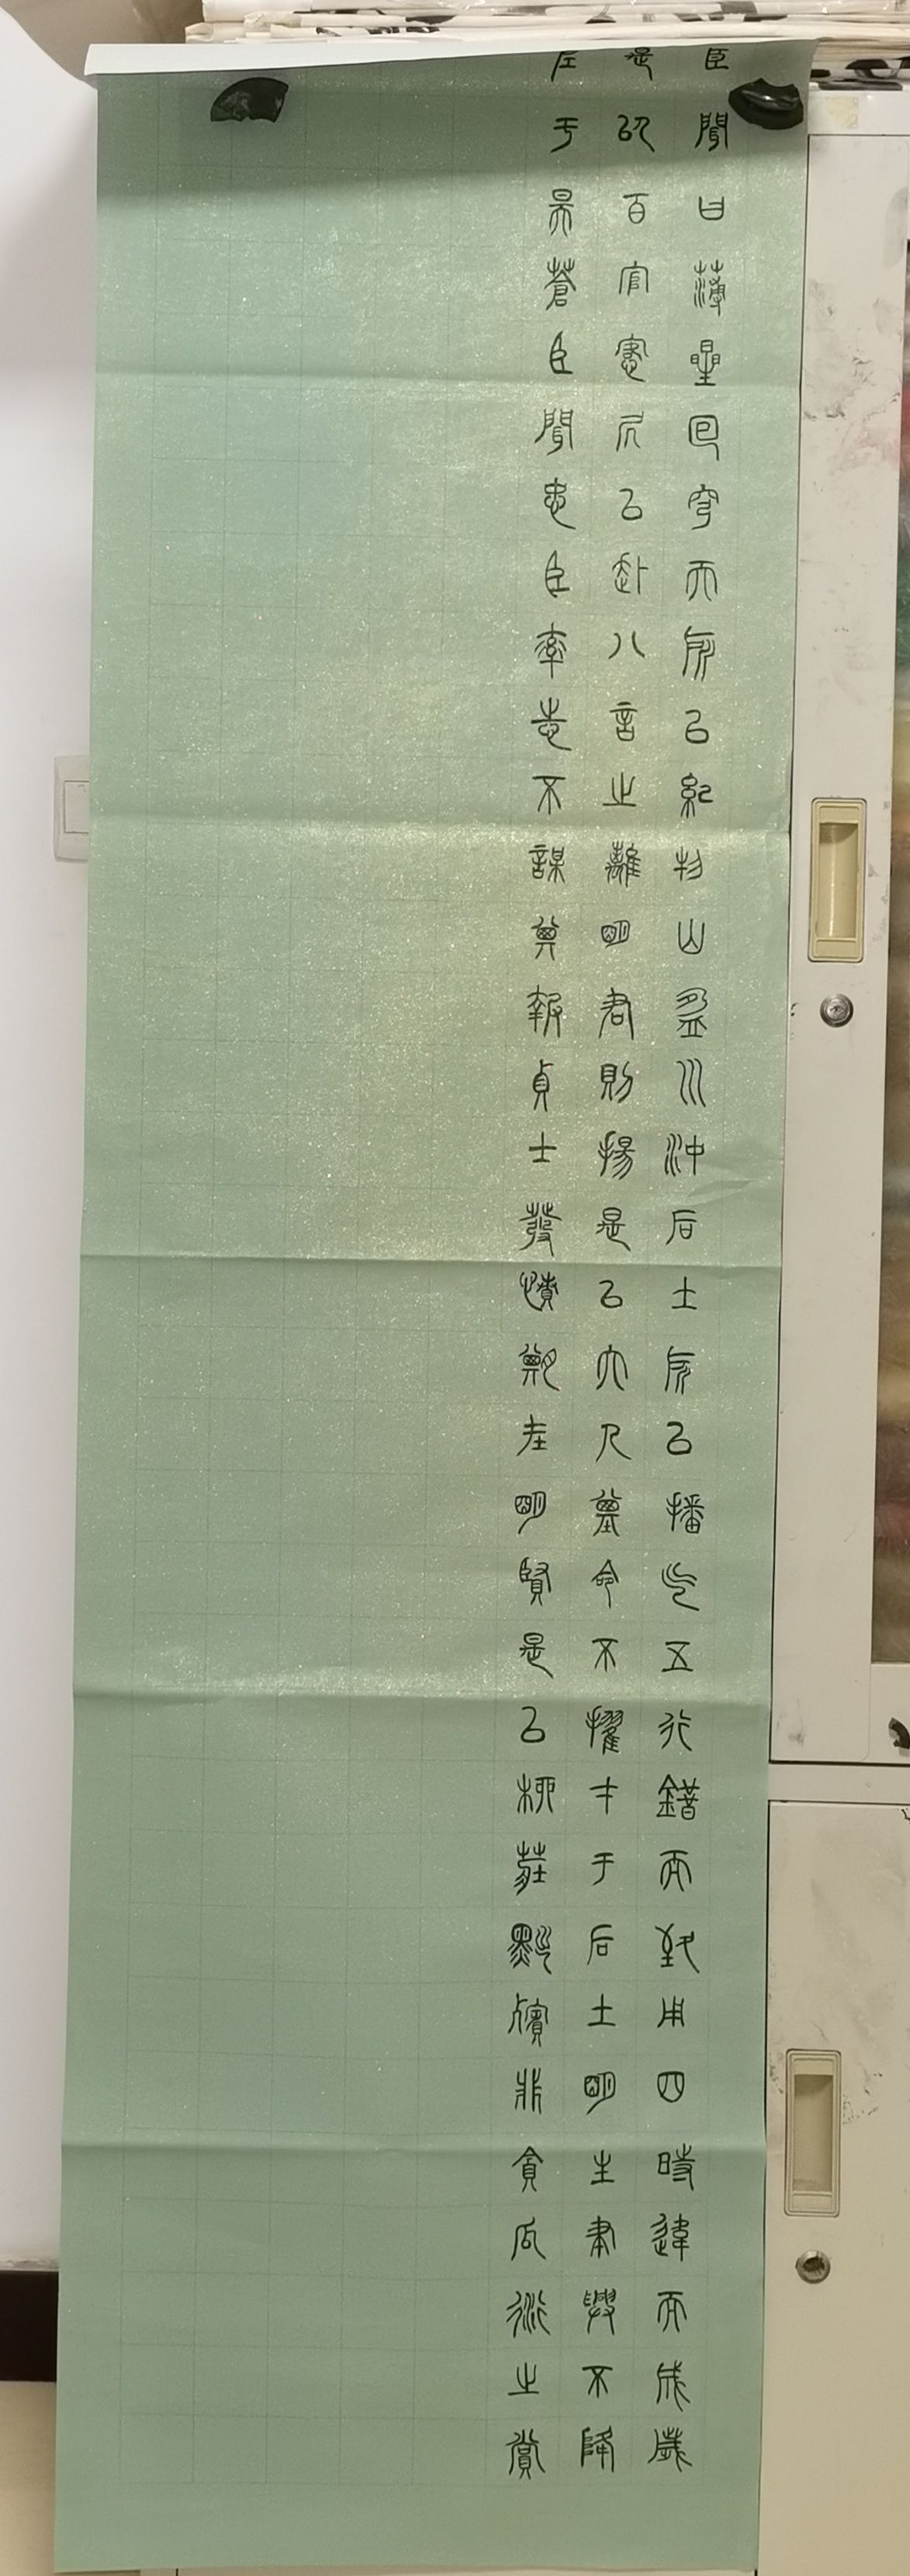 臣聞日薄星回穹天所以紀物山盈川沖后土所以播氣五行錯而致用四時違而成歲
是以百官愙凥以赴八音之離明君則揚是以大人基命不擢才于后土明主聿興不降
左于昊蒼臣聞忠臣率志不謀其報貞士發憤期在明賢是以柳莊黜殯非貪瓜衍之賞